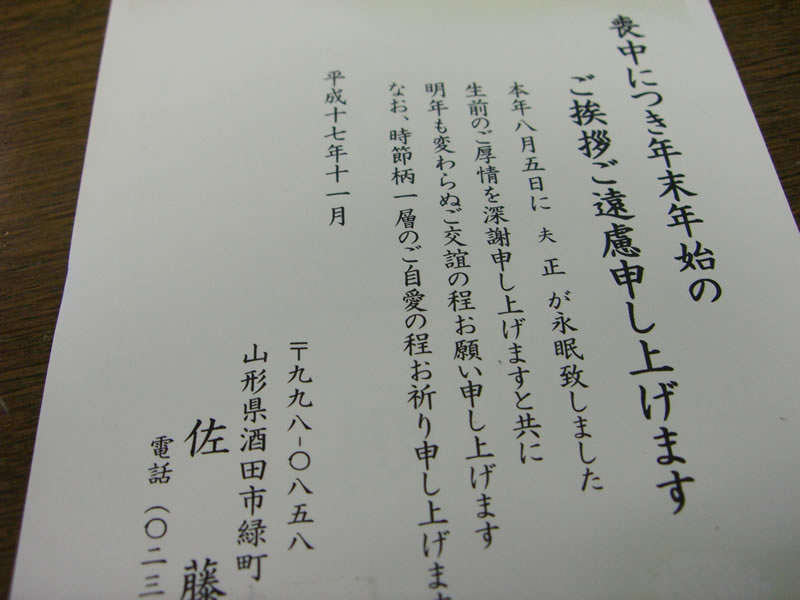 喪中につき年末年始の
ご挨拶ご遠慮申し上げます
本年八月五日に 夫 正 が永眠致しました
生前のご厚情を深謝申し上げますと共に
明年も変わらぬご交誼の程お願い申し上げます
なお、時節柄一層のご自愛の程お祈り申し上げま
平成十七年十一月
〒九九八-〇八五八
山形県酒田市緑町
佐 藤
電話 (〇二三